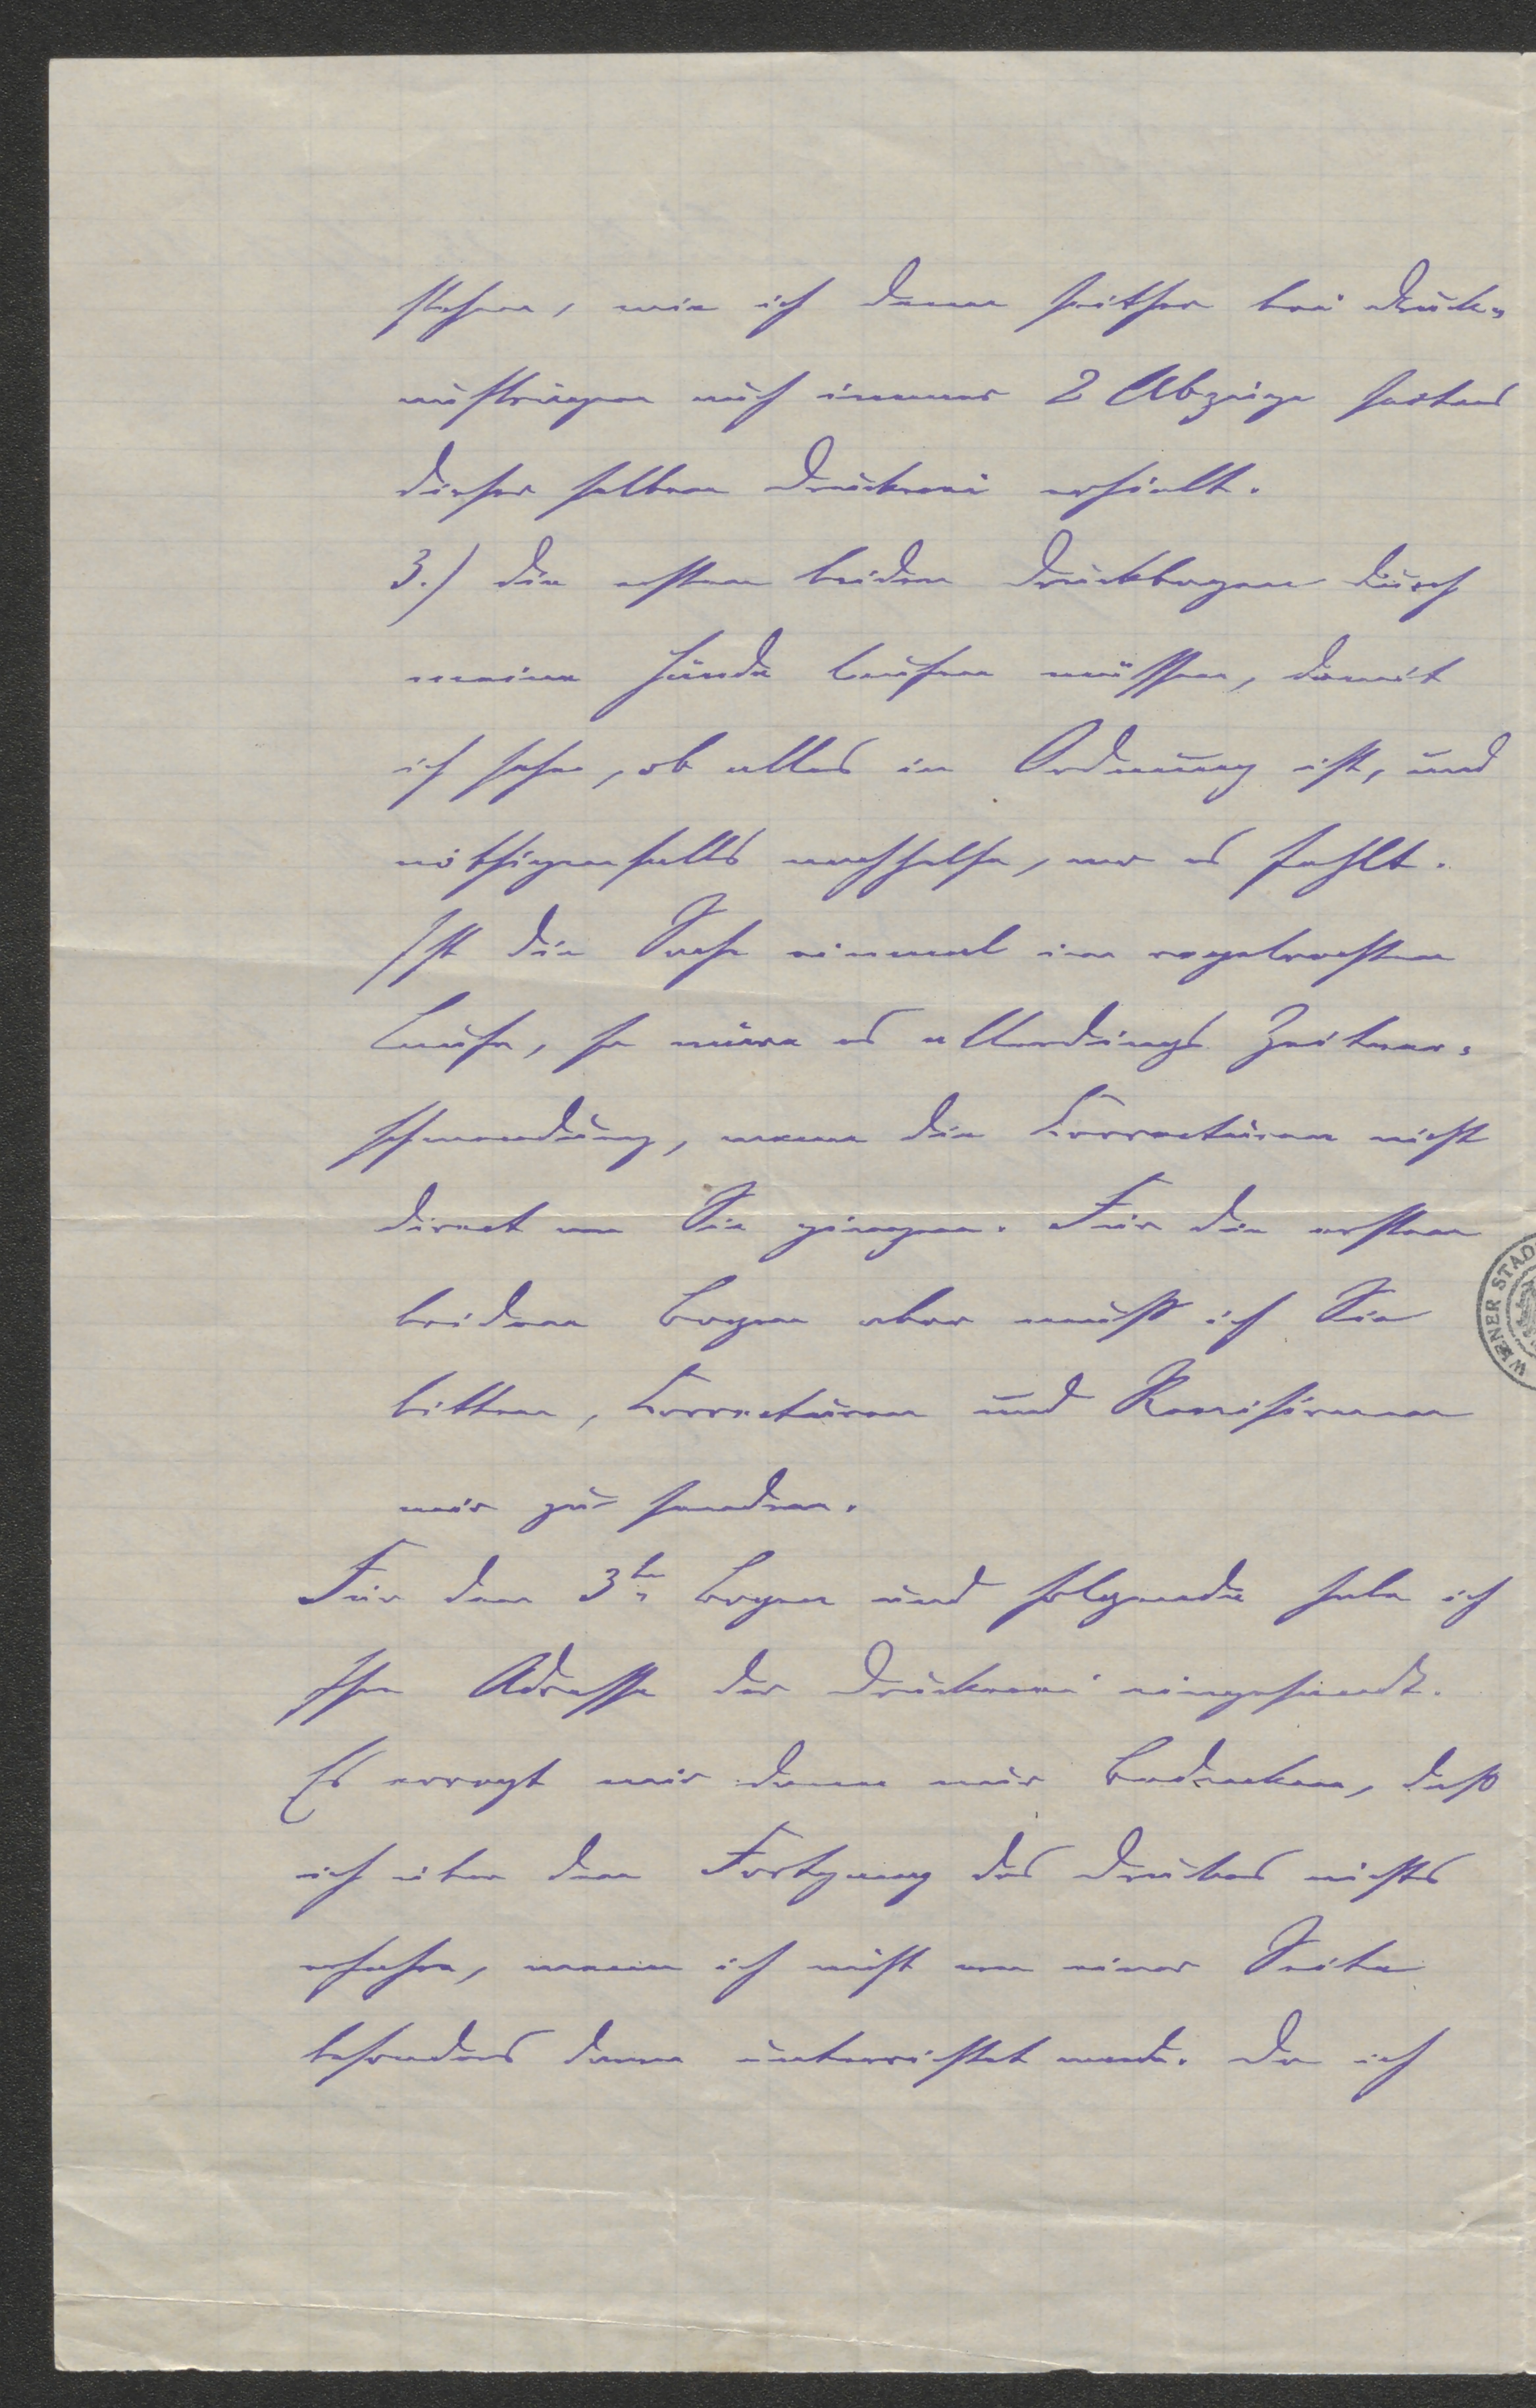 stehen, wie ich denn seither bei Druck-
aufträgen auch immer 2 Abzüge seitens
dieser selben Druckerei erhielt.
3.) die ersten beiden Druckbogen durch
meine Hände laufen müssen, damit
ich sehe, ob alles in Ordnung ist, und
nöthigenfalls nachhelfe, wo es fehlt.
Ist die Sache einmal im regelrechten
Laufe, so wäre es allerdings Zeitver-
schwendung, wenn die Correcturen nicht
direct an Sie gingen. Für die ersten
beiden Bogen aber muß ich Sie
bitten, Correcturen und Revisionen
mir zu senden.
Für den 3ten Bogen und folgende habe ich
Ihre Adresse der Druckerei eingesandt.
Es erregt mir dann nur Bedenken, daß
ich über den Fortgang des Druckes nichts
erfahre, wenn ich nicht von einer Seite
besonders davon unterrichtet werde. Da ich
WIENER STAD